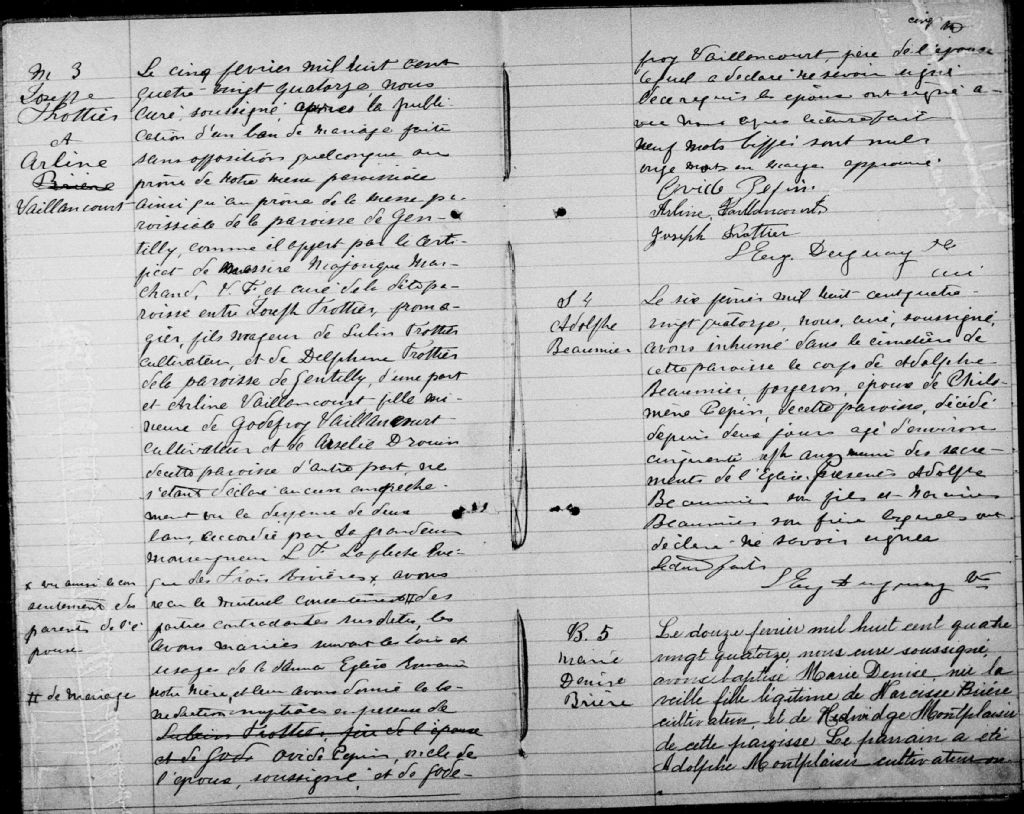 M 3
Joseph
Trottier
&
Arline
Brière
Vaillancourt
Le cinq fevrier mil huit cent
quatre-vingt quatorze, nous
Curé, soussigné, après la publi
cation d'un ban de mariage faite
sans opposition quelconque au
prône de notre messe paroissiale
ainsi qu'au prone de la messe pa-
roissiale de la paroisse de Gen-
tilly, comme il appert par le certi-
ficat de messire Majorique Mar-
chand, V. F. et curé de la dite pa-
roisse entre Joseph Trottier, froma-
gier, fils majeur de Lubin Trottier
cultivateur, et de Delphine Trottier
de la paroisse de Gentilly, d'une part
et Arline Vaillancourt fille mi-
neure de Godefroy Vaillancourt
cultivateur et de Drouin
de cette paroisse d'autre part, ne
s'etant déclaré aucun empeche-
ment vu la dispense de deux
bans, accordée par Sa grandeur
Monseigneur L. F. Lafleche Eve-
que des Trois Rivières x avons
recu le mutuel consentement # des
parties contractantes susdites, les
avons mariées suivant les lois et
usages de la Sainte Eglise Romaine
notre Mère, et leur avons donné la bé-
nediction nuptiale en presence de
Lubin Trottier, père de l'épouse
et de Gode Ovide Pepin, oncle de
l'epoux, soussigné, et de Gode-
x vu aussi le con
sentement des
parents de l'é
pouse
# de mariage
cinq
froy Vaillancourt, père de l'épouse
lequel a declaré ne savoir signé
de ce requis les epoux ont signé a-
vec nous apres lecture fait
neuf mots biffés sont nuls
onze mots en marge approuvé.
Ovide Pepin
Arline Vaillancourt
Joseph Trottier
L Eug. Duguay Ptre
curé
S 4
Adolphe
Beaumier
Le six fevrier mil huit cent quatre-
vingt quatorze, nous, curé, soussigné,
avons inhumé dans le cimetière de
cette paroisse le corps de Adolphe
Beaumier forgeron, epoux de Philo
mène Pepin, de cette paroisse, décédé
depuis deux jours agé d'environ
cinquante sept ans muni des sacre-
ments de l'Eglise. Presents Adolphe
Beaumier son fils et
Beaumier son frère lesquels ont
declaré ne savoir signer
Lecture faite
L Eug Duguay Ptre
B. 5
Marie
Denise
Brière
Le douze fevrier mil huit cent quatre
vingt quatorze, nous cure soussigné,
avons baptise Marie Denise, née la
veille fille légitime de Narcisse Brière
cultivateur, et de Hedwidge Montplaisir
de cette paroisse Le parrain a été
Adolphe Montplaisir cultivateur